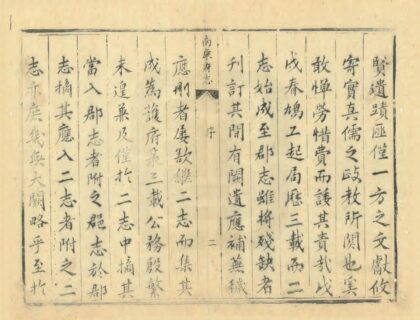 賢遺蹟匪僅一方之文獻攸
寄實真儒之政教所關也奚
敢憚勞惜費而諉其責哉戊
戌春鳩工起局歷三載而二
志始成至郡志雖將殘缺者
刊訂其間有闕遺應補蕪穢
南安府志
序
二
應刪者屢欲繼二志而集其
成為護府事三載公務殷繁
未遑兼及僅於二志中摘其
當入郡志者附之郡志於郡
志摘其應入二志者附之二
志亦庶幾無大闕略乎至於